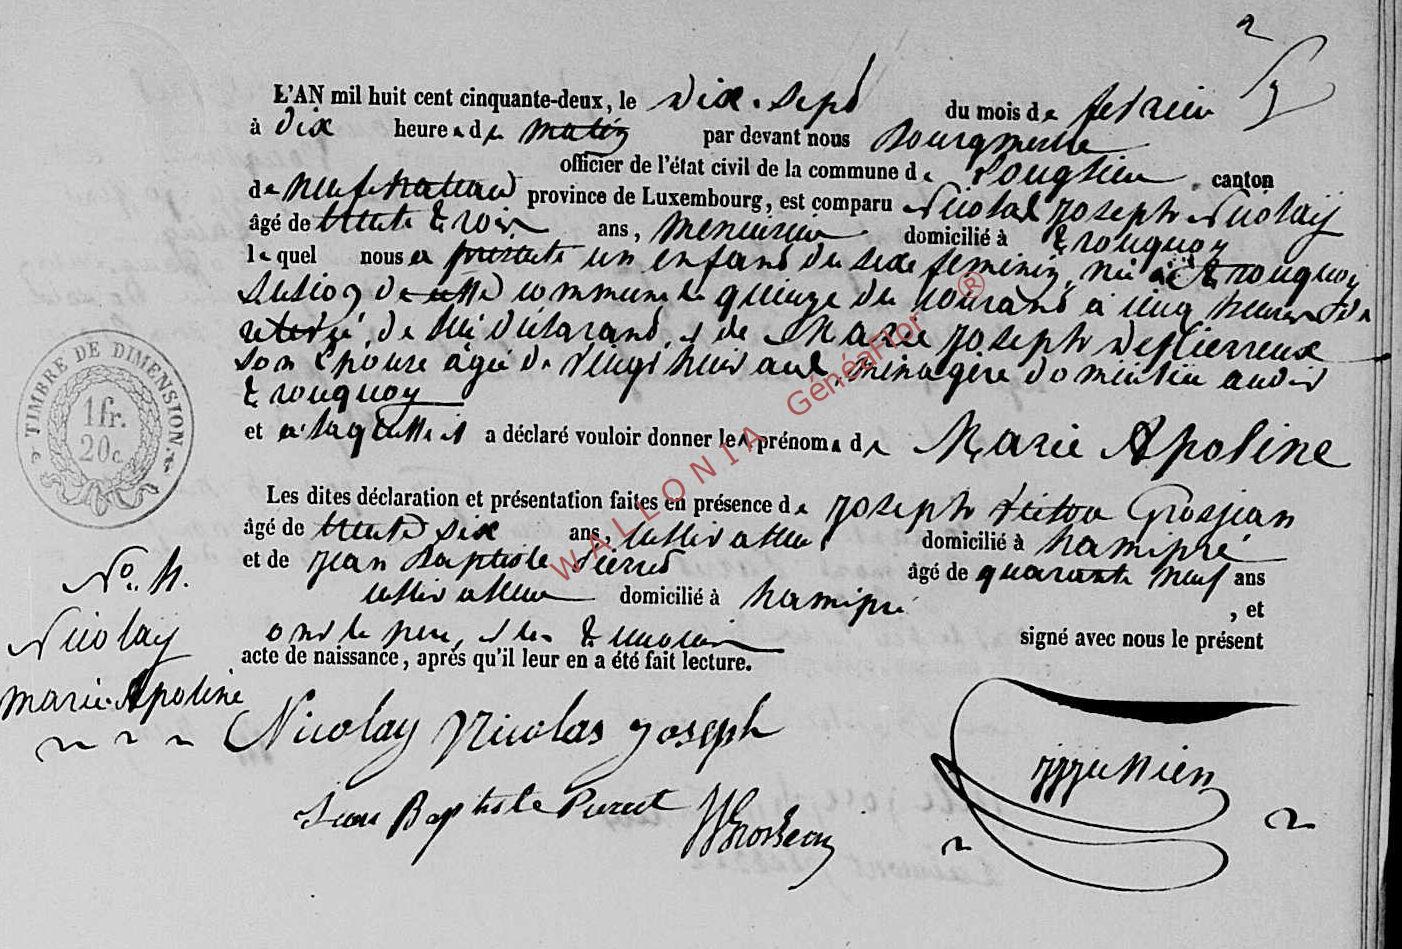 L'AN mil huit cent cinquante-deux, le Dix-Sept du mois de fevrier
à Dix heures du matin par devant nous Bourgmestre
officier de l'état civil de la commune de Longlier, canton
de neufchateau province de Luxembourg, est comparu Nicolas Joseph Nicolay
âgé de trente trois ans, menuisier domicilié à tronquoy
lequel nous a presenté un enfant du sexe feminin, née à tronquoy
Section de cette commune le quinze du courant à cinq heures de
de lui déclarant, et de Marie Joseph
Son Epouse agée de vingt huit ans, menagère domiciliée audit
tronquoy
et a laquelle il a déclaré vouloir donner les prénoms de Marie Apoline
Les dites déclaration et présentation faites en présence de Joseph Grosjean
âgé de trente Six ans, cultivateur domicilié à hamipré
et de Jean Baptiste Pierret âgé de quarante neuf ans
cultivateur domicilié à hamipré, et
ont le pere, et les temoins signé avec nous le présent
acte de naissance, après qu'il leur en a été fait lecture.
No. 4.
Nicolay
marie Apoline
Nicolay Nicolas Joseph
Jean Baptiste Pierret
Grosjean
TIMBRE DE DIMENSION
1 fr.
20 c.
WALLONIA GénéaFlor ®